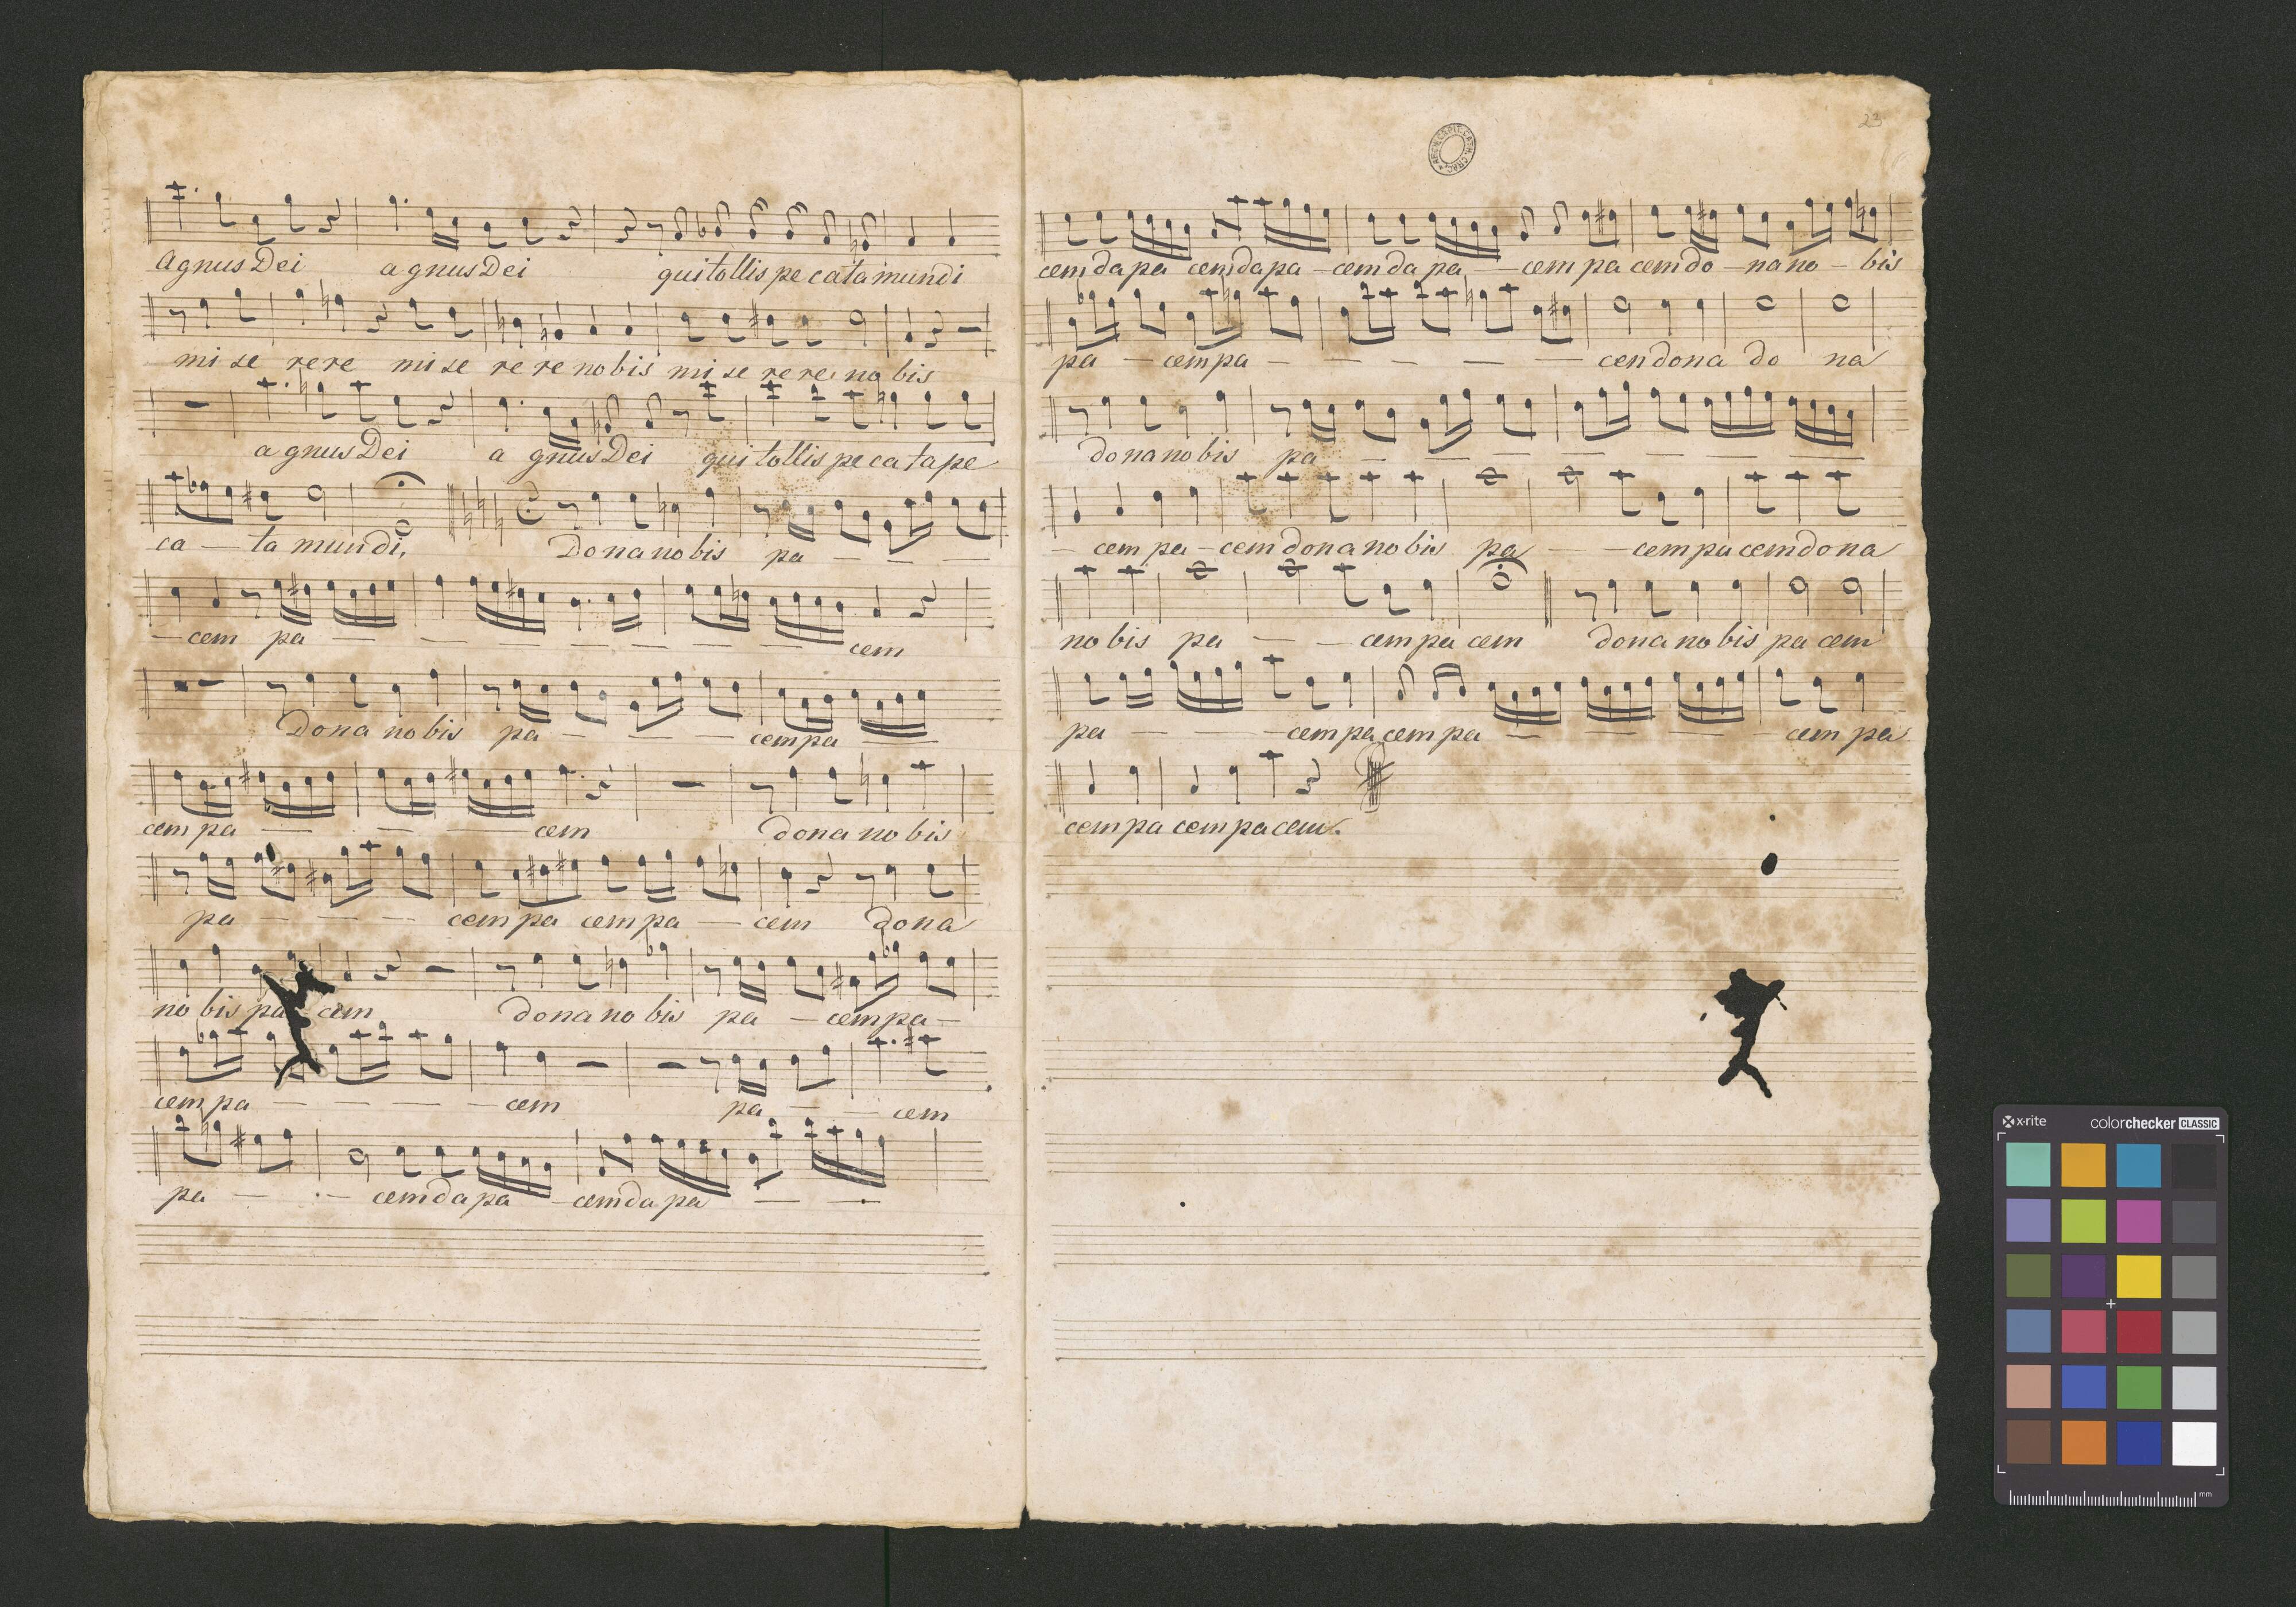 Agnus Dei a gnus Dei qui tollis pe ca ta mundi
mi se re re mi se re re no bis mi se re re no bis
a gnus Dei a gnus Dei qui tollis pe ca ta pe
ca — ta mundi, Dona no bis pa — — — —
— cem pa — — — — — — — cem
Dona no bis pa — — — cem pa — —
cem pa — — — — cem dona no bis
pa — — — cem pa cem pa — cem dona
no bis pa cem dona no bis pa — cem pa —
cem pa — — — — — cem pa — — cem
pa — — cem da pa — cem da pa — — —
23
ARCH. CAPIT. CATH. CRAC.
cem da pa cem da pa — cem da pa — cem pa cem do — na no — bis
pa — cem pa — — — — — — cen dona do na
dona no bis pa — — — — — — —
— cem pa — cem dona no bis pa — — cem pa cem dona
no bis pa — — cem pa cem dona no bis pa cem
pa — — — cem pa cem pa — — — — cem pa
cem pa cem pa cem.
x-rite colorchecker CLASSIC
mm